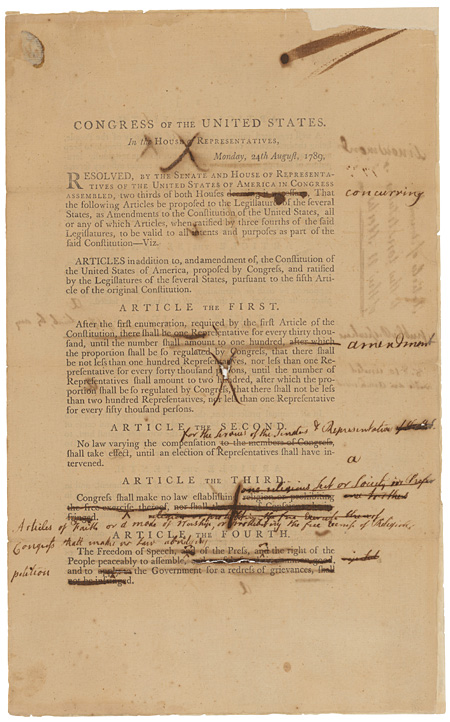 CONGRESS OF THE UNITED STATES.
In the HOUSE of REPRESENTATIVES,
Monday, 24th August, 1789,
RESOLVED, BY THE SENATE AND HOUSE OF REPRESENTA-
TIVES OF THE UNITED STATES OF AMERICA IN CONGRESS
ASSEMBLED, two thirds of both Houses That concurring
the following Articles be proposed to the Legislatures of the several
States, as Amendments to the Constitution of the United States, all
or any of which Articles, when ratified by three fourths of the said
Legislatures, to be valid to all intents and purposes as part of the
said Constitution—Viz.
ARTICLES in addition to, and amendment of, the Constitution of
the United States of America, proposed by Congress, and ratified
by the Legislatures of the several States, pursuant to the fifth Arti-
cle of the original Constitution.
ARTICLE THE FIRST.
After the first enumeration, required by the first Article of the
Constitution, there shall be one Representative for every thirty thou-
sand, until the number shall amount to one hundred, after which amendment
the proportion shall be so regulated by Congress, that there shall
be not less than one hundred Representatives, nor less than one Re-
presentative for every forty thousand persons, until the number of
Representatives shall amount to two hundred, after which the pro-
portion shall be so regulated by Congress, that there shall not be less
than two hundred Representatives, nor less than one Representative
for every fifty thousand persons.
ARTICLE THE SECOND.
for the services of the Senators & Representatives
No law varying the compensation to the members of Congress,
shall take effect, until an election of Representatives shall have in-
tervened.
a
ARTICLE THE THIRD.
one religious sect or society in
Congress shall make no law establishing religion or prohibiting
the free exercise thereof, nor shall the
infringed.
Articles of Faith or a mode of Worship, or prohibiting the free exercise of Religion,
ARTICLE THE FOURTH.
Congress shall make no law abridging
The Freedom of Speech, of the Press, and the right of the
People peaceably to assemble,
petition
and to the Government for a redress of grievances, shall
not be infringed.